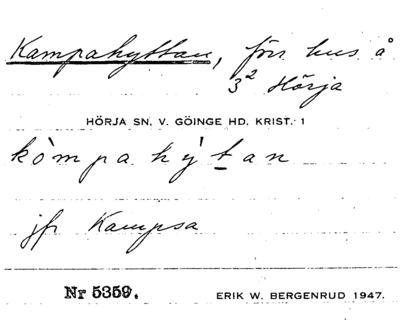 Kampahyttan, förr hus å
3² Hörja
HÖRJA SN. V. GÖINGE HD. KRIST. 1
kòmpahỳtan
jfr Kampsa
Nr 5359.
ERIK W. BERGENRUD 1947.